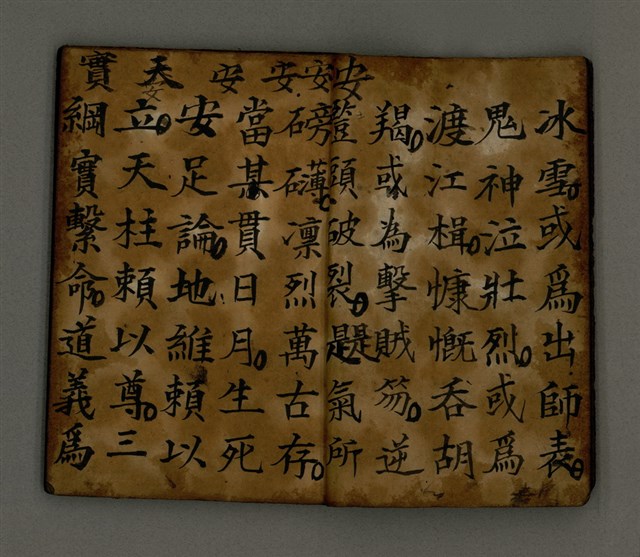 安安安安天實
冰雪或爲出師表
鬼神泣壯烈或爲
渡江楫慷慨吞胡
羯或為擊賊笏逆
頭破裂是氣所
磅礴凛烈萬古存
當其貫日月生死
安足論地維賴以
立天柱賴以尊三
綱實繫命道義爲